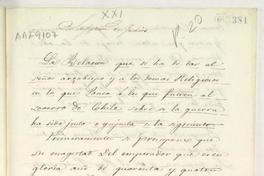 XXI
AAF9107
p. 20
381
La Relacion que se ha de dar al
señor arzobispo y a los demas Religiosos
en lo que Panca a lo que fueron al
socorro de Chile sobre si la guerra
ha sido justa o injusta es la siguiente
Primeramente se presupone que
su magestad del emperador que es en
gloria año de quarenta y quatro